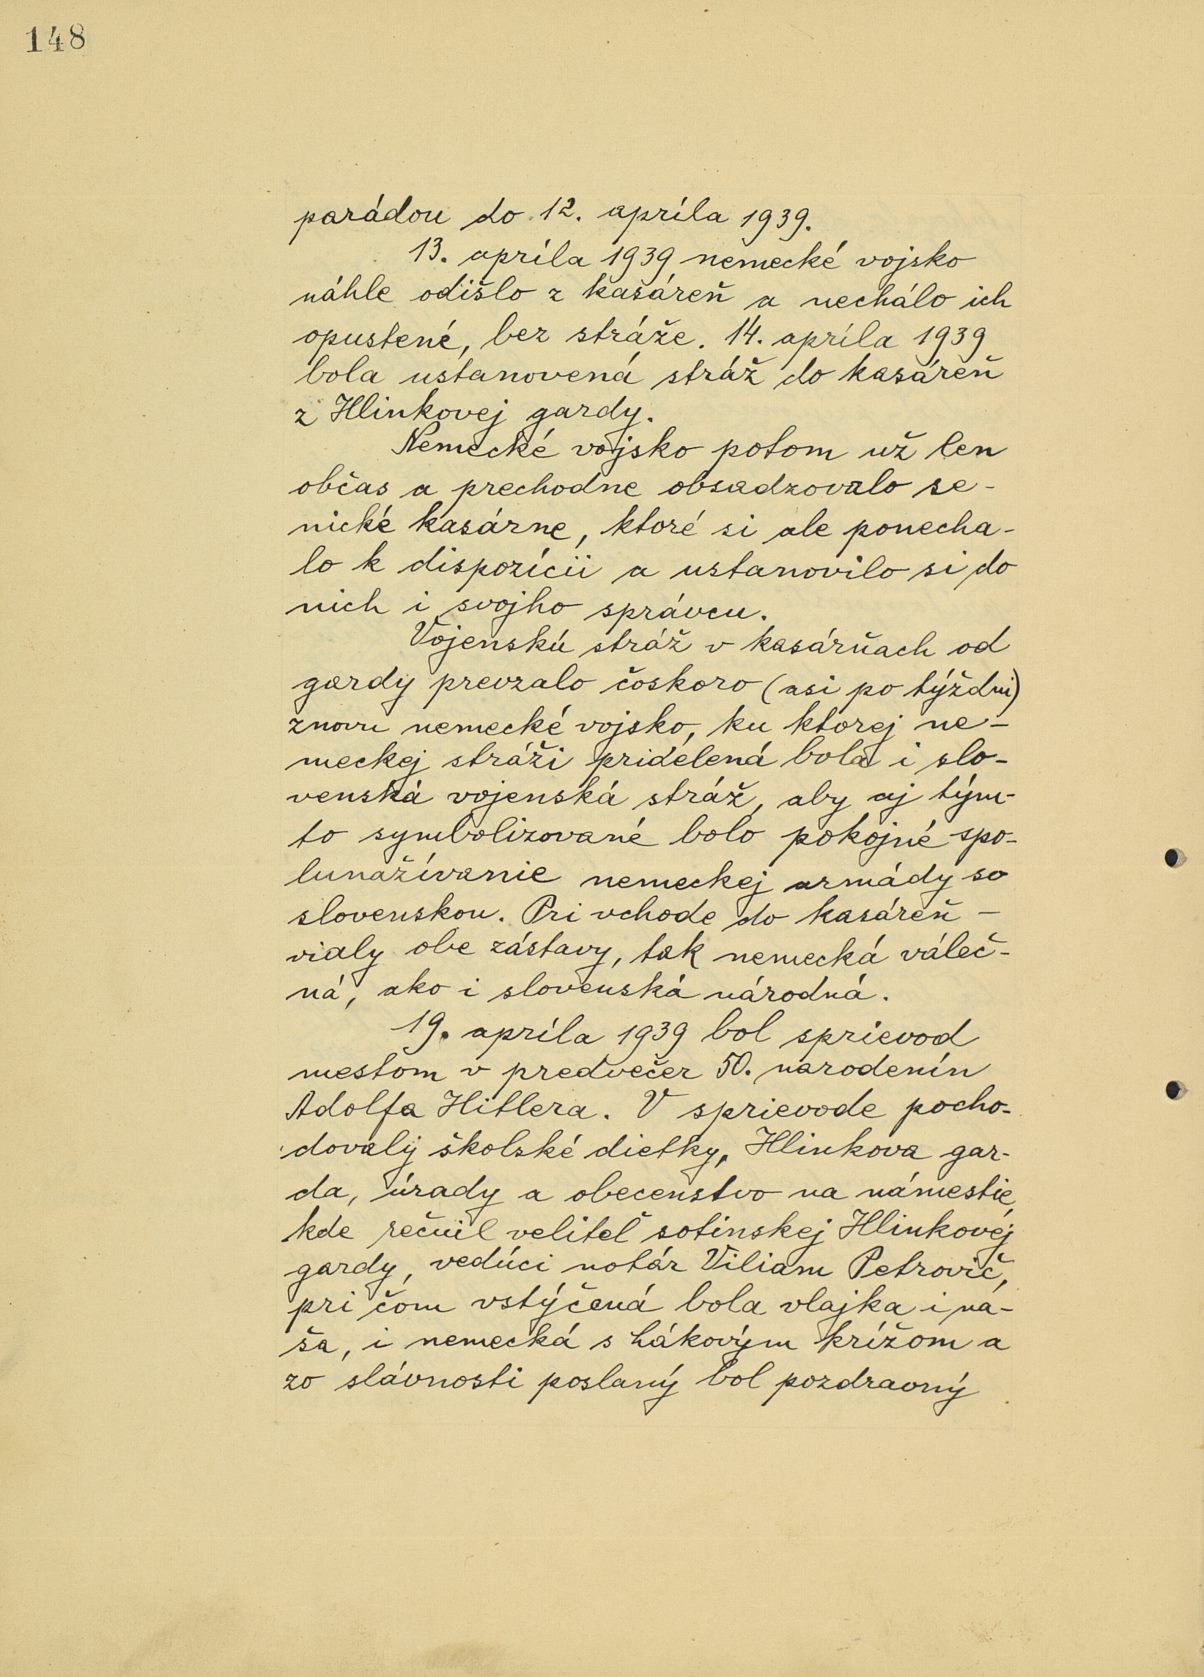 148
parádou do 12. apríla 1939.
13. apríla 1939 nemecké vojsko
náhle odišlo z kasáreň a nechálo ich
opustené, bez stráže. 14. apríla 1939
bola ustanovená stráž do kasáreň
z Hlinkovej gardy.
Nemecké vojsko potom už len
občas a prechodne obsadzovalo se-
nické kasárne, ktoré si ale ponecha-
lo k dispozícii a ustanovilo si do
nich i svojho správcu.
Vojenskú stráž v kasárňach od
gardy prevzalo čoskoro (asi po týždni)
znovu nemecké vojsko, ku ktorej ne-
meckej stráži pridelená bola i slo-
venská vojenská stráž, aby aj tým-
to symbolizované bolo pokojné spo-
lunažívanie nemeckej armády so
slovenskou. Pri vchode do kasáreň -
vialy obe zástavy, tak nemecká váleč-
ná, ako i slovenská národná.
19. apríla 1939 bol sprievod
mestom v predvečer 50. narodenín
Adolfa Hitlera. V sprievode pocho-
dovaly školské dietky, Hlinkova gar-
da, úrady a obecenstvo na námestie,
kde rečnil veliteľ sotinskej Hlinkovej
gardy, vedúci notár Viliam Petrovič,
pri čom vstýčená bola vlajka i na-
ša, i nemecká s hákovým krížom a
zo slávnosti poslaný bol pozdravný